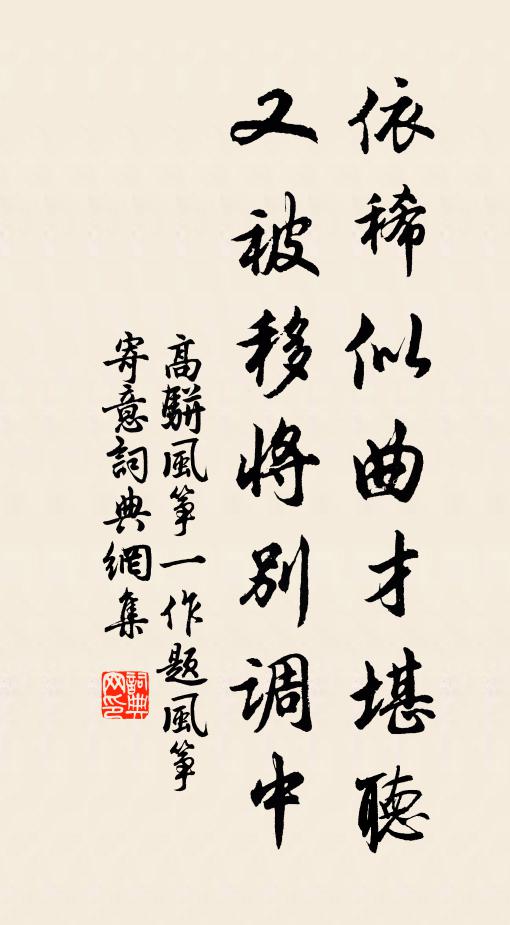 依稀似曲才堪聽
又被移將別調中
高駢風箏一作題風箏
寄意詞典網集
詞典網印